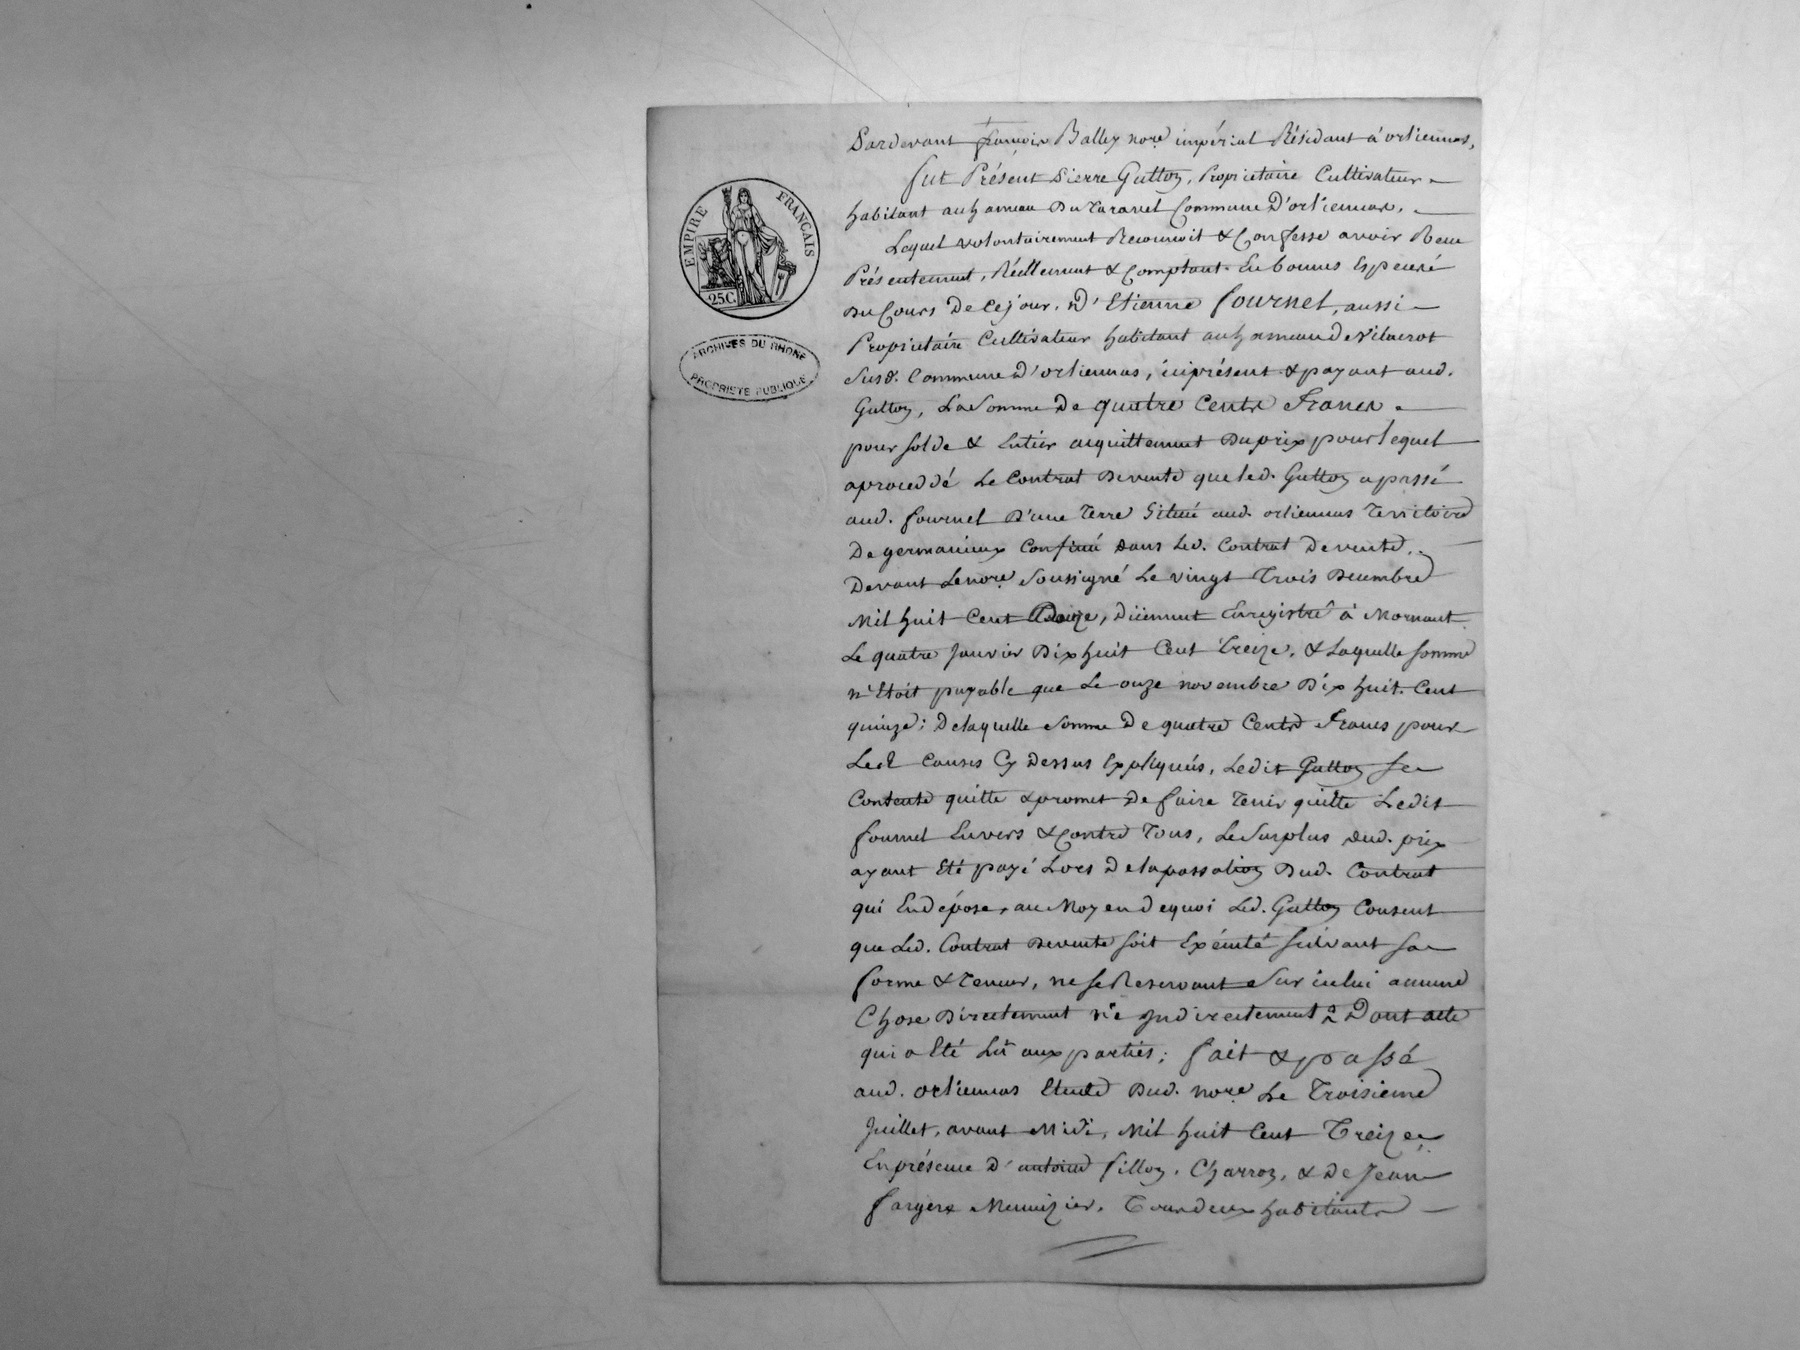 EMPIRE FRANÇAIS
25C.
ARCHIVES DU RHÔNE
PROPRIÉTÉ PUBLIQUE
Pardevant françois Balley nore impérial Résidant à orliennas,
fut Présent Pierre Gutton, Propriétaire Cultivateur
habitant au hameau Du Caravel Commune D'orliennas.
Lequel volontairement Reconnoit & Confesse avoir Recu
Présentement, Réellement & Comptant En bonnes Especes
Du Cours De Ce jour, D'Etienne fournel, aussi
Propriétaire Cultivateur habitant au hameau De
Susd. Commune D'orliennas, ici présent & payant aud.
Gutton, La Somme De quatre Cents Francs
pour solde & Entier acquittement Du prix pour lequel
a procedé Le Contrat De vente que led. Gutton a passé
aud. fournel D'une Terre Située aud. orliennas Territoire
De germanieux Confinée Dans Led. Contrat De vente,
Devant Le nore Soussigné Le vingt Trois Decembre
Mil huit Cent Douze, Düement Enregistré à Mornant
Le quatre Janvier Dix huit Cent Treize, & Laquelle somme
n'Etoit payable que Le onze novembre Dix huit Cent
quinze; De laquelle Somme De quatre Cents Francs pour
Les Causes Cy Dessus Expliquées, Ledit Gutton se
Contente quitte & promet De faire Tenir quitte Ledit
fournel Envers & Contre Tous, Le Surplus Dud. prix
ayant Eté payé Lors De la passation Dud. Contrat
qui En dépose, au Moyen De quoi Led. Gutton Consent
que Led. Contrat De vente soit Exécuté suivant sa
forme & Teneur, ne se Reservant Sur icelui aucune
Chose Directement ni Indirectement Dont acte
qui a Eté Lû aux parties; fait & passé
aud. orliennas Etude Dud. nore Le Troisieme
Juillet, avant Midi, Mil huit Cent Treize
En présence D'antoine fillon, Charron, & De Jean
fargere Menuizier, Tous deux habitants